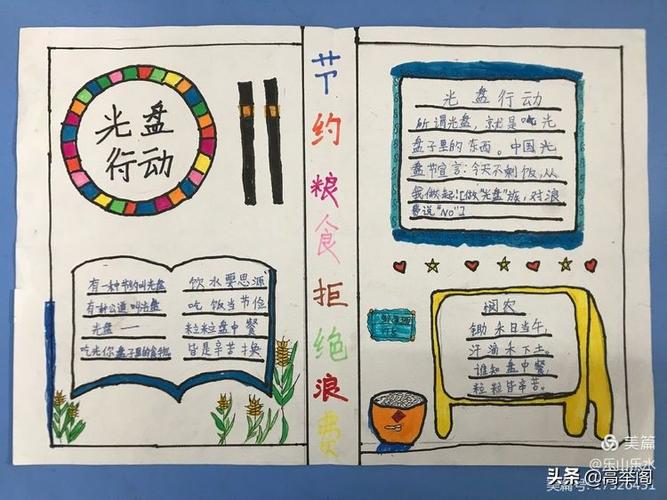 光盘
行动
节约粮食拒绝浪费
光盘行动
所谓光盘，就是吃光
盘子里的东西。中国光
盘节宣言：今天不剩饭，从
我做起！做"光盘"族，对浪
费说"NO"！
有一种节约叫光盘
有一种公道叫光盘
光盘——
吃光你盘子里的食物
饮水要思源
吃饭当节俭
粒粒盘中餐
皆是辛苦换
悯农
锄禾日当午，
汗滴禾下土。
谁知盘中餐，
粒粒皆辛苦。
美篇
@乐山乐水
美篇号：17320451
头条 @高举阁